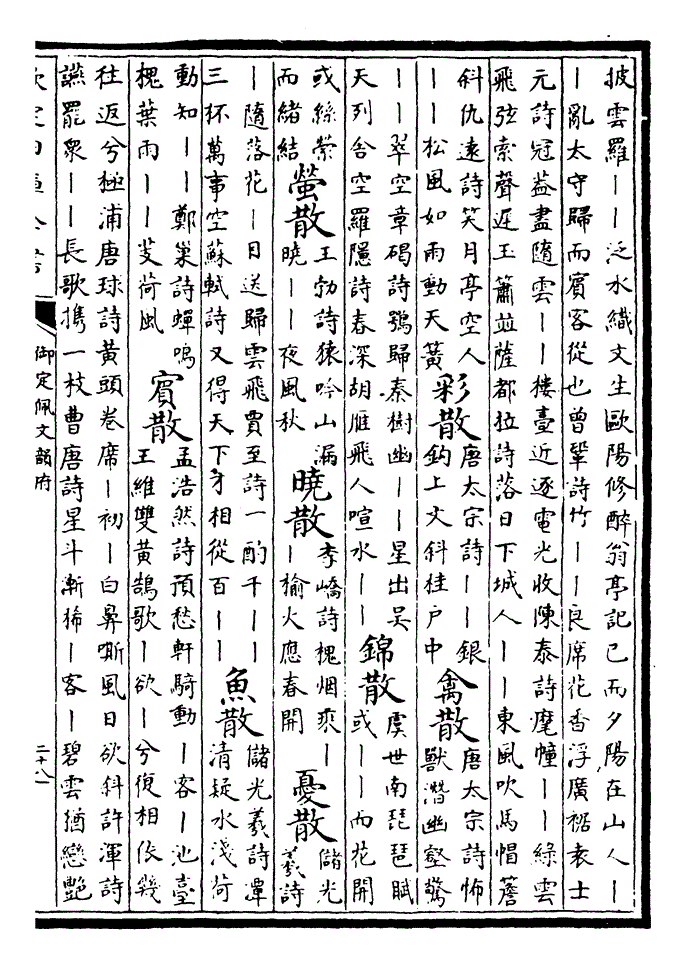 披雲羅——泛水織文生歐陽修醉翁亭記已而夕陽在山人—
—亂太守歸而賓客從也曾鞏詩竹——良席花香浮廣裾表士
元詩冠蓋盡隨雲——樓臺近逐電光收陳泰詩麾幢——綠雲
飛弦索聲遲玉簫並薩都拉詩落日下城人——東風吹馬帽簷
斜仇遠詩笑月亭空人
——松風如雨動天簧
彩散
唐太宗詩——銀
鈎上文斜桂戶中
禽散
唐太宗詩怖
獸潛幽壑驚
——翠空章碣詩鶚歸秦樹幽——星出吳
天列舍空羅隱詩春深胡雁飛人喧水——
錦散
虞世南琵琶賦
或——而花開
或絲縈
而緒結
螢散
王勃詩猿吟山漏
曉——夜風秋
曉散
李嶠詩槐烟乘—
—榆火應春開
憂散
儲光
羲詩
—隨落花—日送歸雲飛賈至詩一酌千——
三杯萬事空蘇軾詩又得天下才相從百——
魚散
儲光羲詩潭
清疑水淺荷
動知——鄭巢詩蟬鳴
槐葉雨——芰荷風
賓散
孟浩然詩預愁軒騎動—客—池臺
王維雙黃鵠歌—欲—兮復相依幾
往返兮極浦唐球詩黃頭卷席—初—白鼻嘶風日欲斜許渾詩
讌罷衆——長歌攜一枝曹唐詩星斗漸稀—客—碧雲猶戀艷
御定佩文韻府
二十八